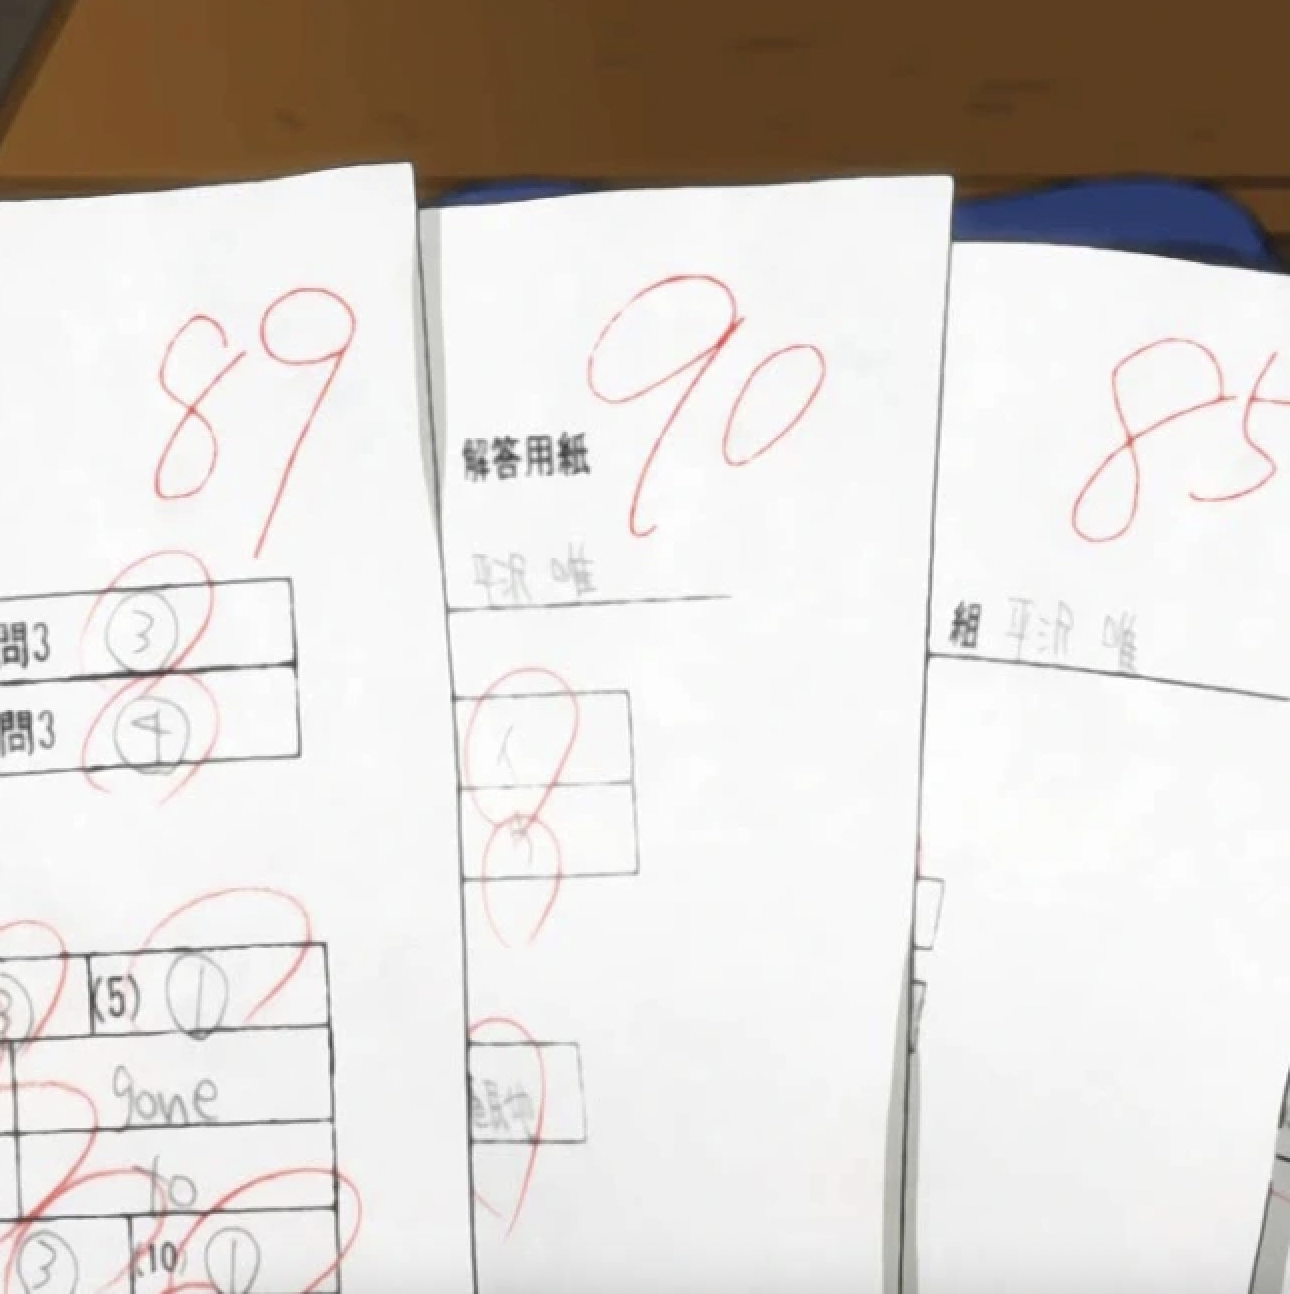 89
問3 ③
問3 ④
(5) ①
gone
to
③ (10) ①
90
解答用紙
平沢 唯
イ
85
組 平沢 唯